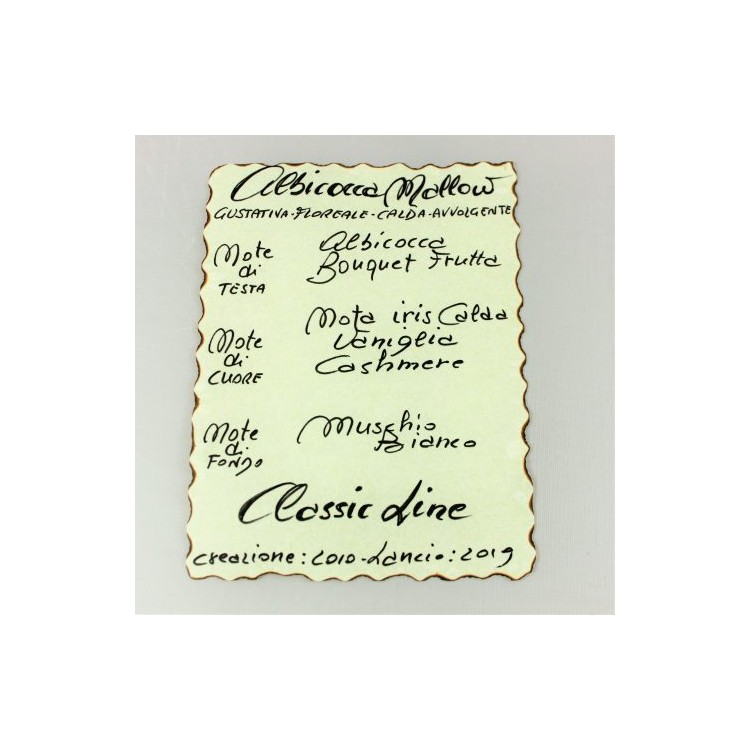 Albicocca Mallow
GUSTATIVA-FLOREALE-CALDA-AVVOLGENTE
Note
di
TESTA
Albicocca
Bouquet Frutta
Note
di
CUORE
Nota iris Calda
Vaniglia
Cashmere
Note
di
FONDO
Muschio
Bianco
Classic Line
Creazione: 2010 - Lancio: 2019